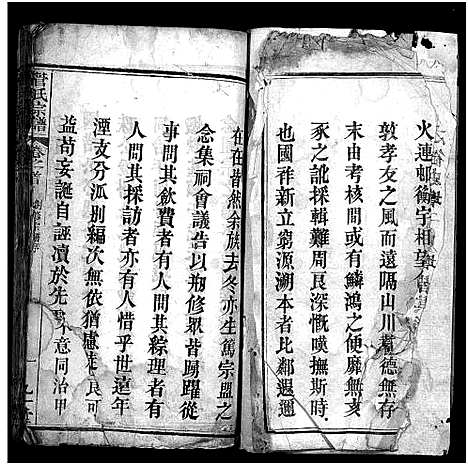 火連邨衡宇相望
敦孝友之風而遠隔山川耆德無存
末由考核間或有鱗鴻之便靡無亥
豕之訛採輯難周良深慨嘆撫斯時
也國祚新立窮源溯本者比鄰遐邇
在在皆然余族去冬亦生篤宗盟之
念集祠會議告以刱修眾皆踴躍從
事問其歛費者有人問其綜理者有
人問其採訪者亦有人惜乎世遠年
湮支分派別編次無依猶慮
民可
益苟妄誕自誣瀆於先
意同治甲
管氏宗譜
卷之首